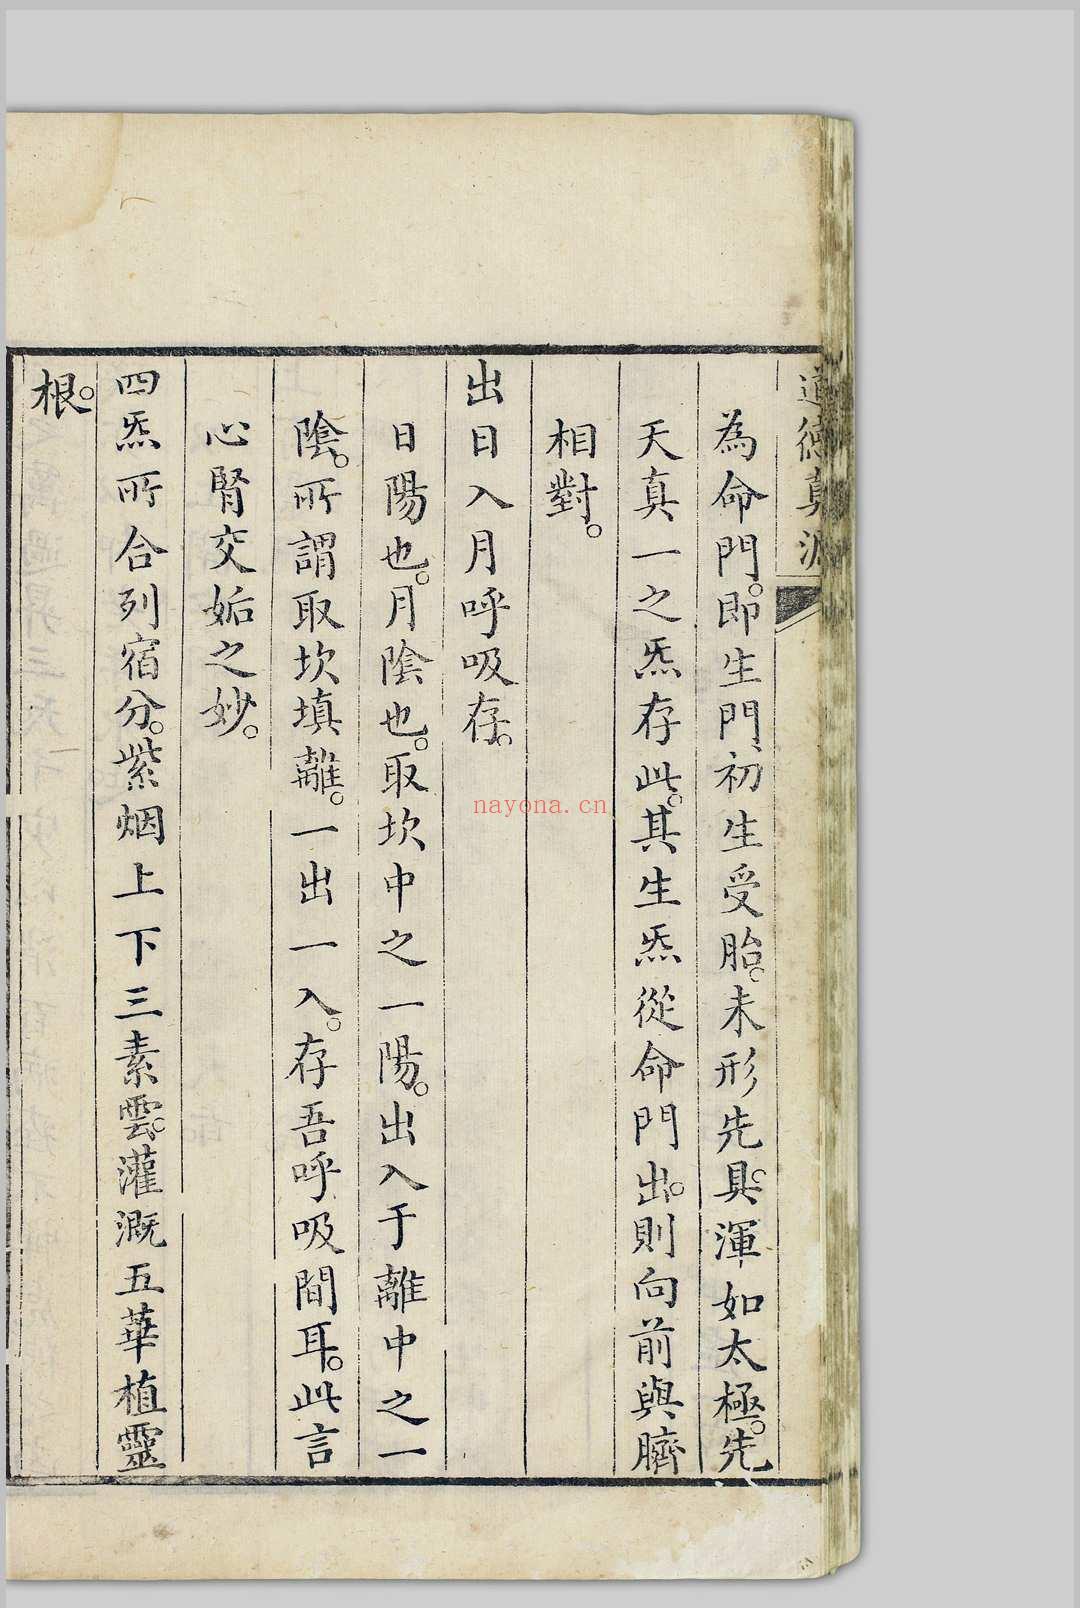 道德真源
為命門。即生門、初生受胎。未形先具。渾如太極。先
天真一之炁存此。其生炁從命門出。則向前與臍
相對。
出日入月呼吸存。
日陽也。月陰也。取坎中之一陽。出入于離中之一
陰。所謂取坎填離。一出一入。存吾呼吸間耳。此言
心腎交姤之妙。
四炁所合列宿分。紫烟上下三素雲。灌溉五華植靈
根。
nayona.cn